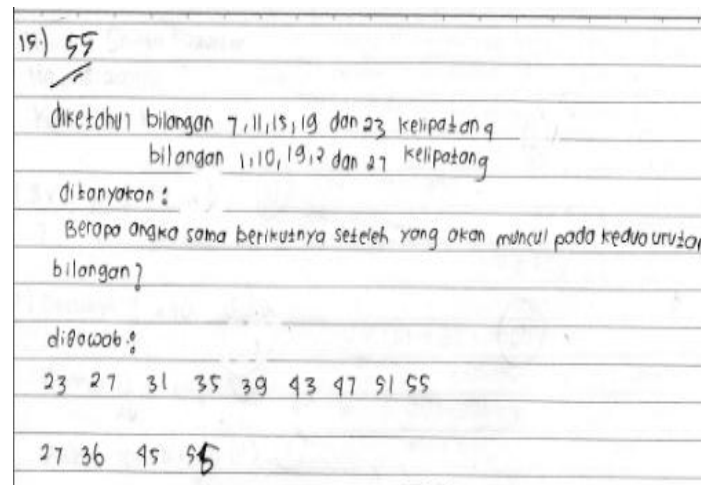 15.) 55
diketahui bilangan 7,11,15,19 dan 23 kelipatan 4
bilangan 1,10,19,2 dan 27 kelipatan 9
ditanyakan :
Berapa angka sama berikutnya seteleh yang akan muncul pada kedua urutan
bilangan?
dijawab :
23 27 31 35 39 43 47 51 55
27 36 45 55